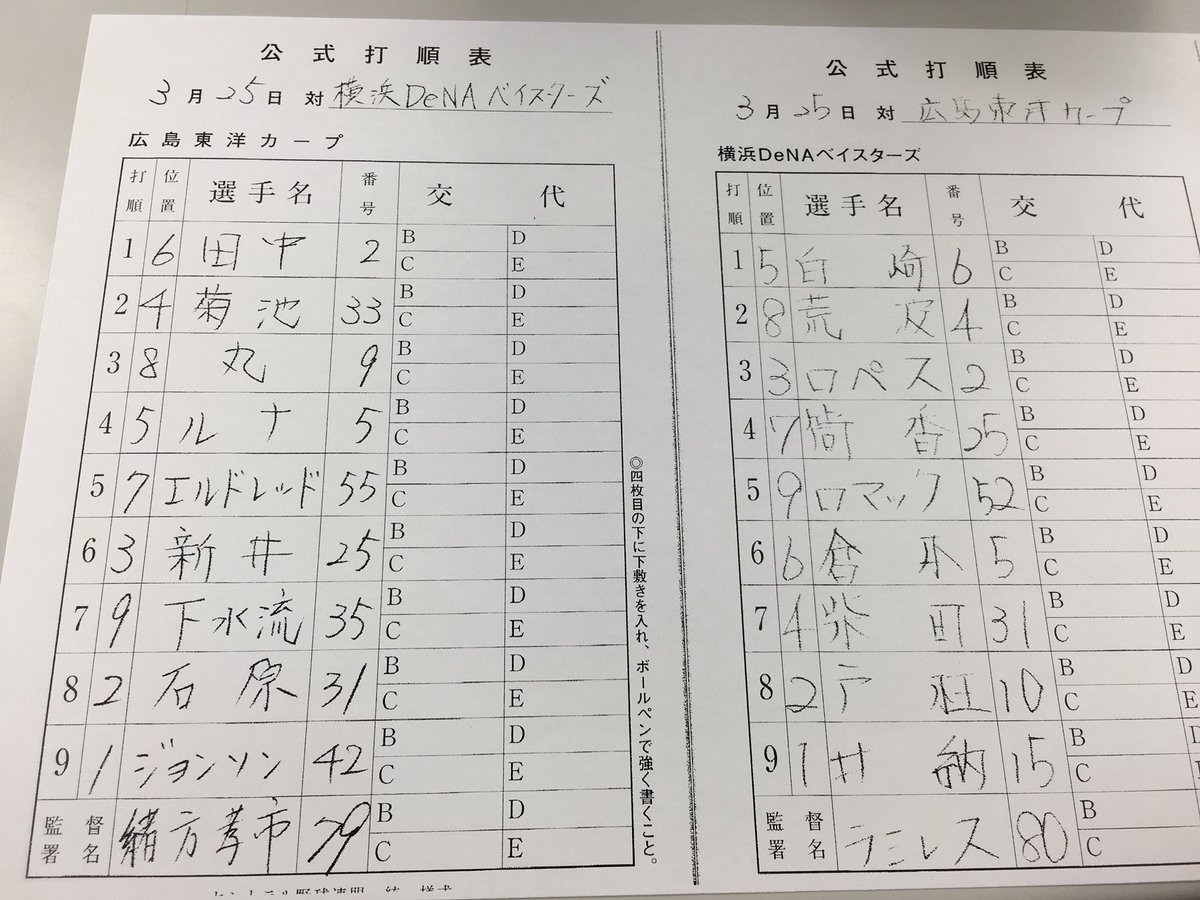 公式打順表
3月25日 対 横浜DeNAベイスターズ
広島東洋カープ
打順 位置 選手名 番号 交代
1 6 田中 2 B D
C E
2 4 菊池 33 B D
C E
3 8 丸 9 B D
C E
4 5 ルナ 5 B D
C E
5 7 エルドレッド 55 B D
C E
6 3 新井 25 B D
C E
7 9 下水流 35 B D
C E
8 2 石原 31 B D
C E
9 1 ジョンソン 42 B D
C E
監督署名 緒方孝市 79 B D
C E
◎四枚目の下に下敷きを入れ、ボールペンで強く書くこと。
公式打順表
3月25日 対 広島東洋カープ
横浜DeNAベイスターズ
打順 位置 選手名 番号 交代
1 5 白崎 6 B D
C E
2 8 荒波 4 B D
C E
3 3 ロペス 2 B D
C E
4 7 筒香 25 B D
C E
5 9 ロマック 52 B D
C E
6 6 倉本 5 B D
C E
7 4 柴田 31 B D
C E
8 2 戸柱 10 B D
C E
9 1 井納 15 B D
C E
監督署名 ラミレス 80 B
C